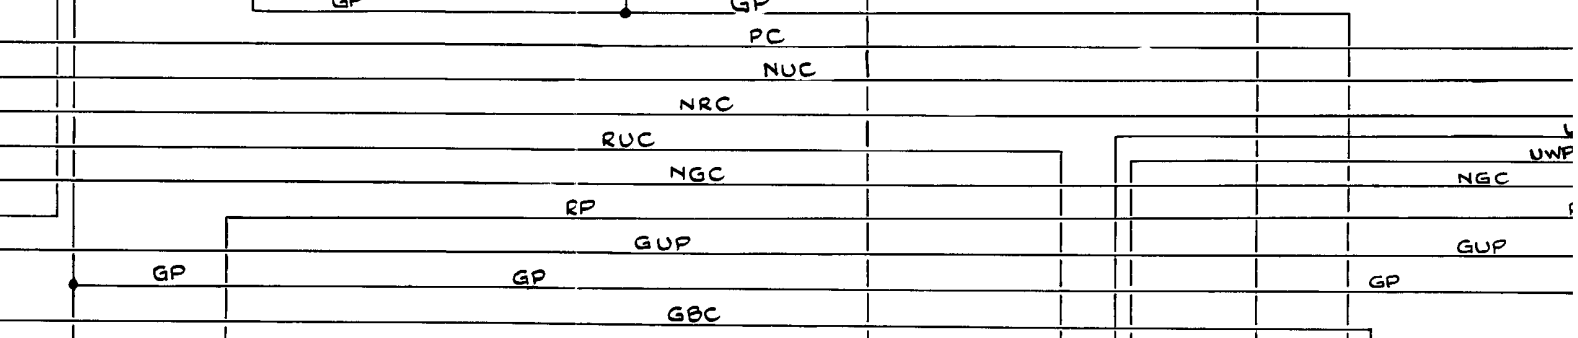 GP GP
PC
NUC
NRC
RUC
UWP
NGC NGC
RP
GUP GUP
GP GP GP
GBC